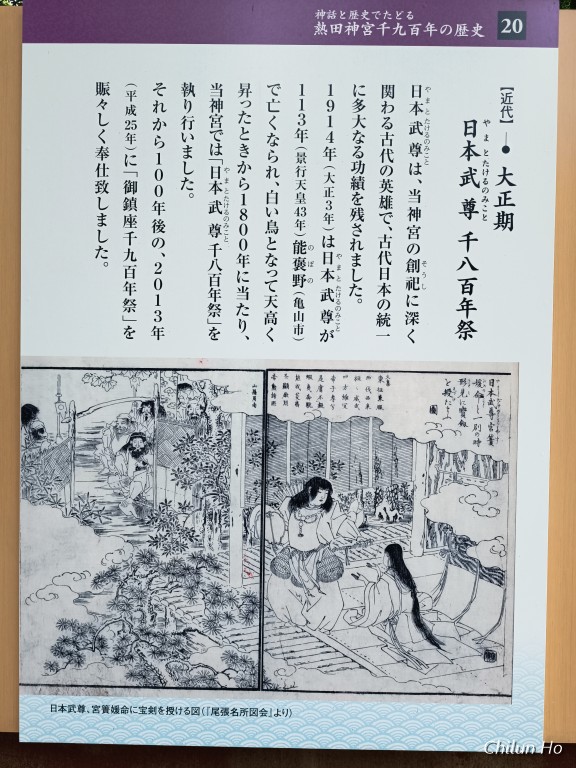 神話と歴史でたどる
熱田神宮千九百年の歴史
20
【近代】―● 大正期
日本武尊 千八百年祭
やまとたけるのみこと
日本武尊は、当神宮の創祀に深く
やまとたけるのみこと
そうし
関わる古代の英雄で、古代日本の統一
に多大なる功績を残されました。
1914年(大正3年)は日本武尊が
やまとたけるのみこと
113年(景行天皇43年)能褒野(亀山市)
のぼの
で亡くなられ、白い鳥となって天高く
昇ったときから1800年に当たり、
当神宮では「日本武尊千八百年祭」を
やまとたけるのみこと
執り行いました。
それから100年後の、2013年
(平成25年)に「御鎮座千九百年祭」を
賑々しく奉仕致しました。
日本武尊、宮簀媛命に宝剣を授ける図(『尾張名所図会』より)
Chilun Ho